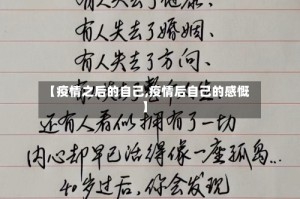 有人失去了健康、
有人失去了婚姻、
有人失去了方向、
【疫情之后的自己,疫情后自己的感慨
】
还有人看似拥有了一切
内心却早已活得像一座孤岛...
40岁过后,你会发现